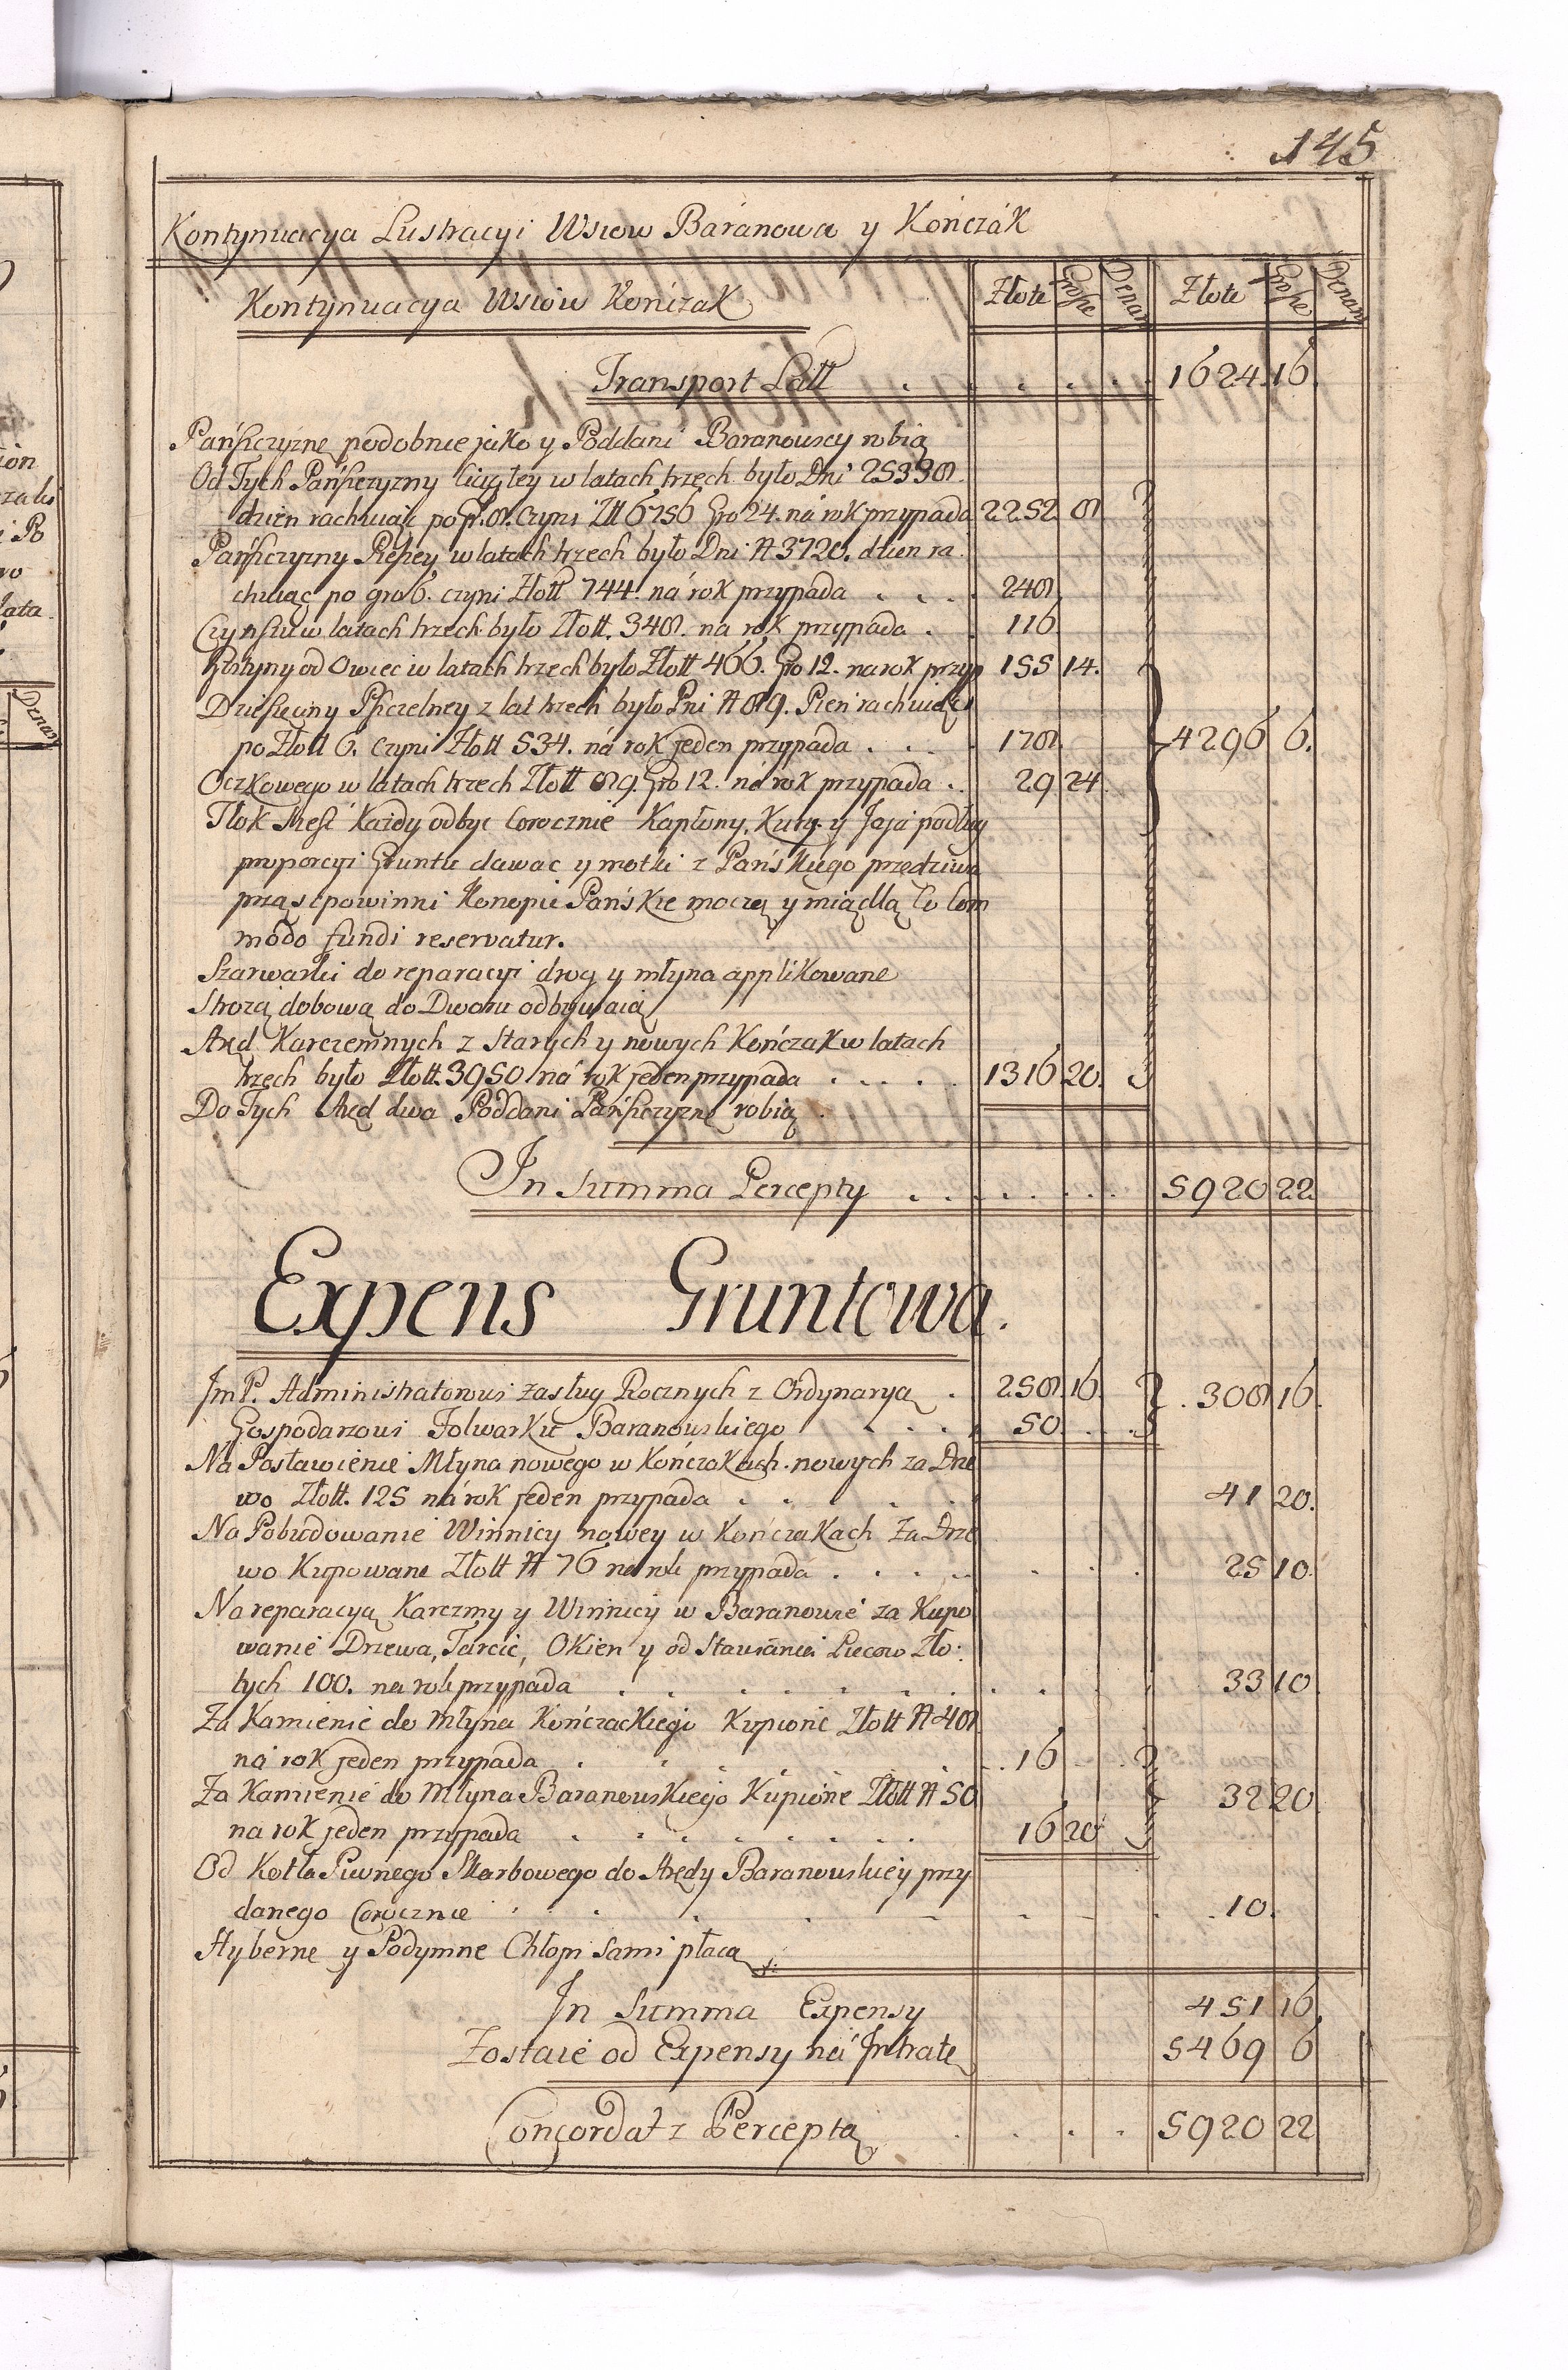 145
Kontynuacya Lustracyi Wsiow Baranowa y Kończak
Kontynuacya Wsiow Kończak Złote Grosze Denar Złote Grosze Denar
Transport Latt . . . . . 1624 16.
Pańszczyznę podobnie jako y Poddani Baranowscy robią
Od Tych Pańszczyzny Ciągłey w latach trzech było Dni 25338.
dzien rachuiąc po gr. 8. czyni Złł 6756 Gro 24. ná rok przypada 2252 8
Pańszczyzny Pieszey w latach trzech było Dni N 3720. dzien ra:
chuiąc po gro 6. czyni Złott 744. ná rok przypada . . . . 248
Czynszu w latach trzech było Złott. 348. na rok przypada . . 116
Zołtyny od Owiec w latach trzech było Złott 466. Gro 12. na rok przyp 155 14.
Dziesięciny Pszczelney z lat trzech było Pni N 89. Pień rachuiąc
po Złott 6. czyni Złott 534. ná rok jeden przypada . . . . 178 4296 6.
Oczkowego w latach trzech Złott 89. Gro 12. ná rok przypada . . 29 24.
Tłok Sześć Każdy odbyć Corocznie Kapłony, Kury y Jaja podług
proporcyi Gruntu dawac y motki z Pańskiego przędziwa
prząść powinni Konopie Pańskie moczą y miądlą Co Com
modo fundi reservatur.
Szarwarki do reparacyi drog y młyna applikowane
Strożą dobową do Dworu odbywaią
Aręd Karczemnych z Starych y nowych Kończak w latach
trzech było Złott. 3950 ná rok jeden przypada . . . . . 1316 20.
Do Tych Aręd dwa Poddani Pańszczyznę robią .
In Summa Percepty . . . . . . . 5920 22
Expens Gruntowa.
Jm P. Administratorowi zasług Rocznych z Ordynaryą . 258 16. 308 16.
Gospodarzowi Folwarku Baranowskiego . . . . 50.
Na Postawienie Młyna nowego w Kończakach nowych za Drze
wo Złott. 125 ná rok jeden przypada . . . . . 41 20.
Na Pobudowanie Winnicy nowey w Kończakach Za Drze
wo Kupowane Złott N 76 na rok przypada . . . . . 25 10.
Na reparacyą Karczmy y Winnicy w Baranowie za Kupo
wanie Drzewa, Tarcic, Okien y od Stawiania Piecow Zło:
tych 100. na rok przypada . . . . . . . . . 33 10.
Za Kamienie do Młyna Kończackiego Kupione Złott N 48
ná rok jeden przypada . . . . 16
Za Kamienie do Młyna Baranowskiego Kupione Złott N 50 32 20.
na rok jeden przypada . . . . . . . 16 20
Od Kotła Piwnego Skarbowego do Arędy Baranowskiey przy
danego Corocznie . . . . . . . . 10.
Hyberne y Podymne Chłopi sami płacą
In Summa Expensy 451 16.
Zostaie od Expensy ná Intratę 5469 6
Concordat z Perceptą . . . . 5920 22